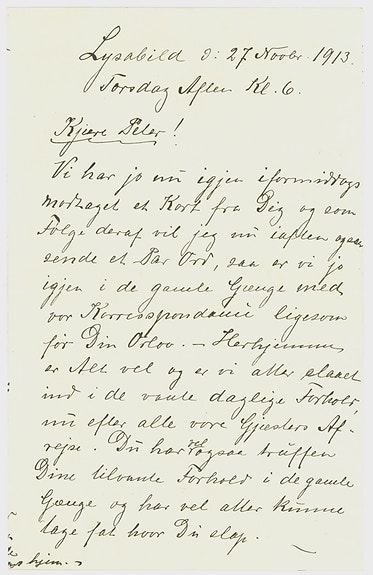 Lysabild d: 27 Novbr. 1913.
Torsdag Aften Kl. 6.
Kjære Peter!
Vi har jo nu igjen iformiddags
modtaget et Kort fra Dig og som
Følge deraf vil jeg nu iaften ogsaa
sende et Par Ord, saa er vi jo
igjen i de gamle Gænge med
vor Korrespondance ligesom
før Din Orlov. – Herhjemme
er Alt vel og er vi atter slaaet
ind i de vante daglige Forhold,
nu efter alle vore Gjæsters Af-
rejse. Du har vel ogsaa truffen
Dine tilvante Forhold i de gamle
Gænge og har vel atter kunne
tage fat hvor Du slap. –